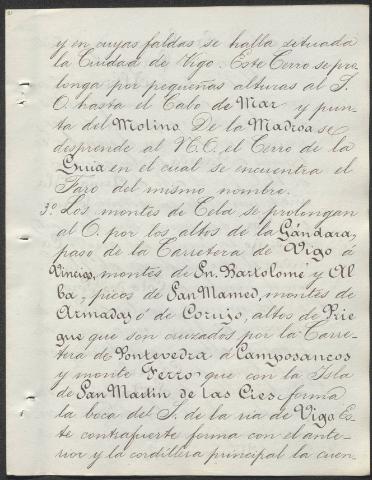 y en cuyas faldas se halla situada
la Ciudad de Vigo. Este Cerro se pro-
longa por pequeñas alturas al S.
O. hasta el Cabo de Mar y pun-
ta del Molino. De la Madroa se
desprende al N.O. el Cerro de la
Guia en el cual se encuentra el
Faro del mismo nombre.
3º Los montes de Cela se prolongan
al O. por los altos de la Gándara,
paso de la Carretera de Vigo á
Vincios, montes de Sn. Bartolomé y Al
ba, picos de San Mamed, montes de
Armada, ó de Corujo, altos de Prie
gue que son cruzados por la Carre-
tera de Pontevedra á Camposancos
y monte Ferro que con la Isla
de San Martin de las Cíes forma
la boca del S. de la ria de Vigo. Es-
te contrafuerte forma con el ante-
rior y la cordillera principal la cuen-